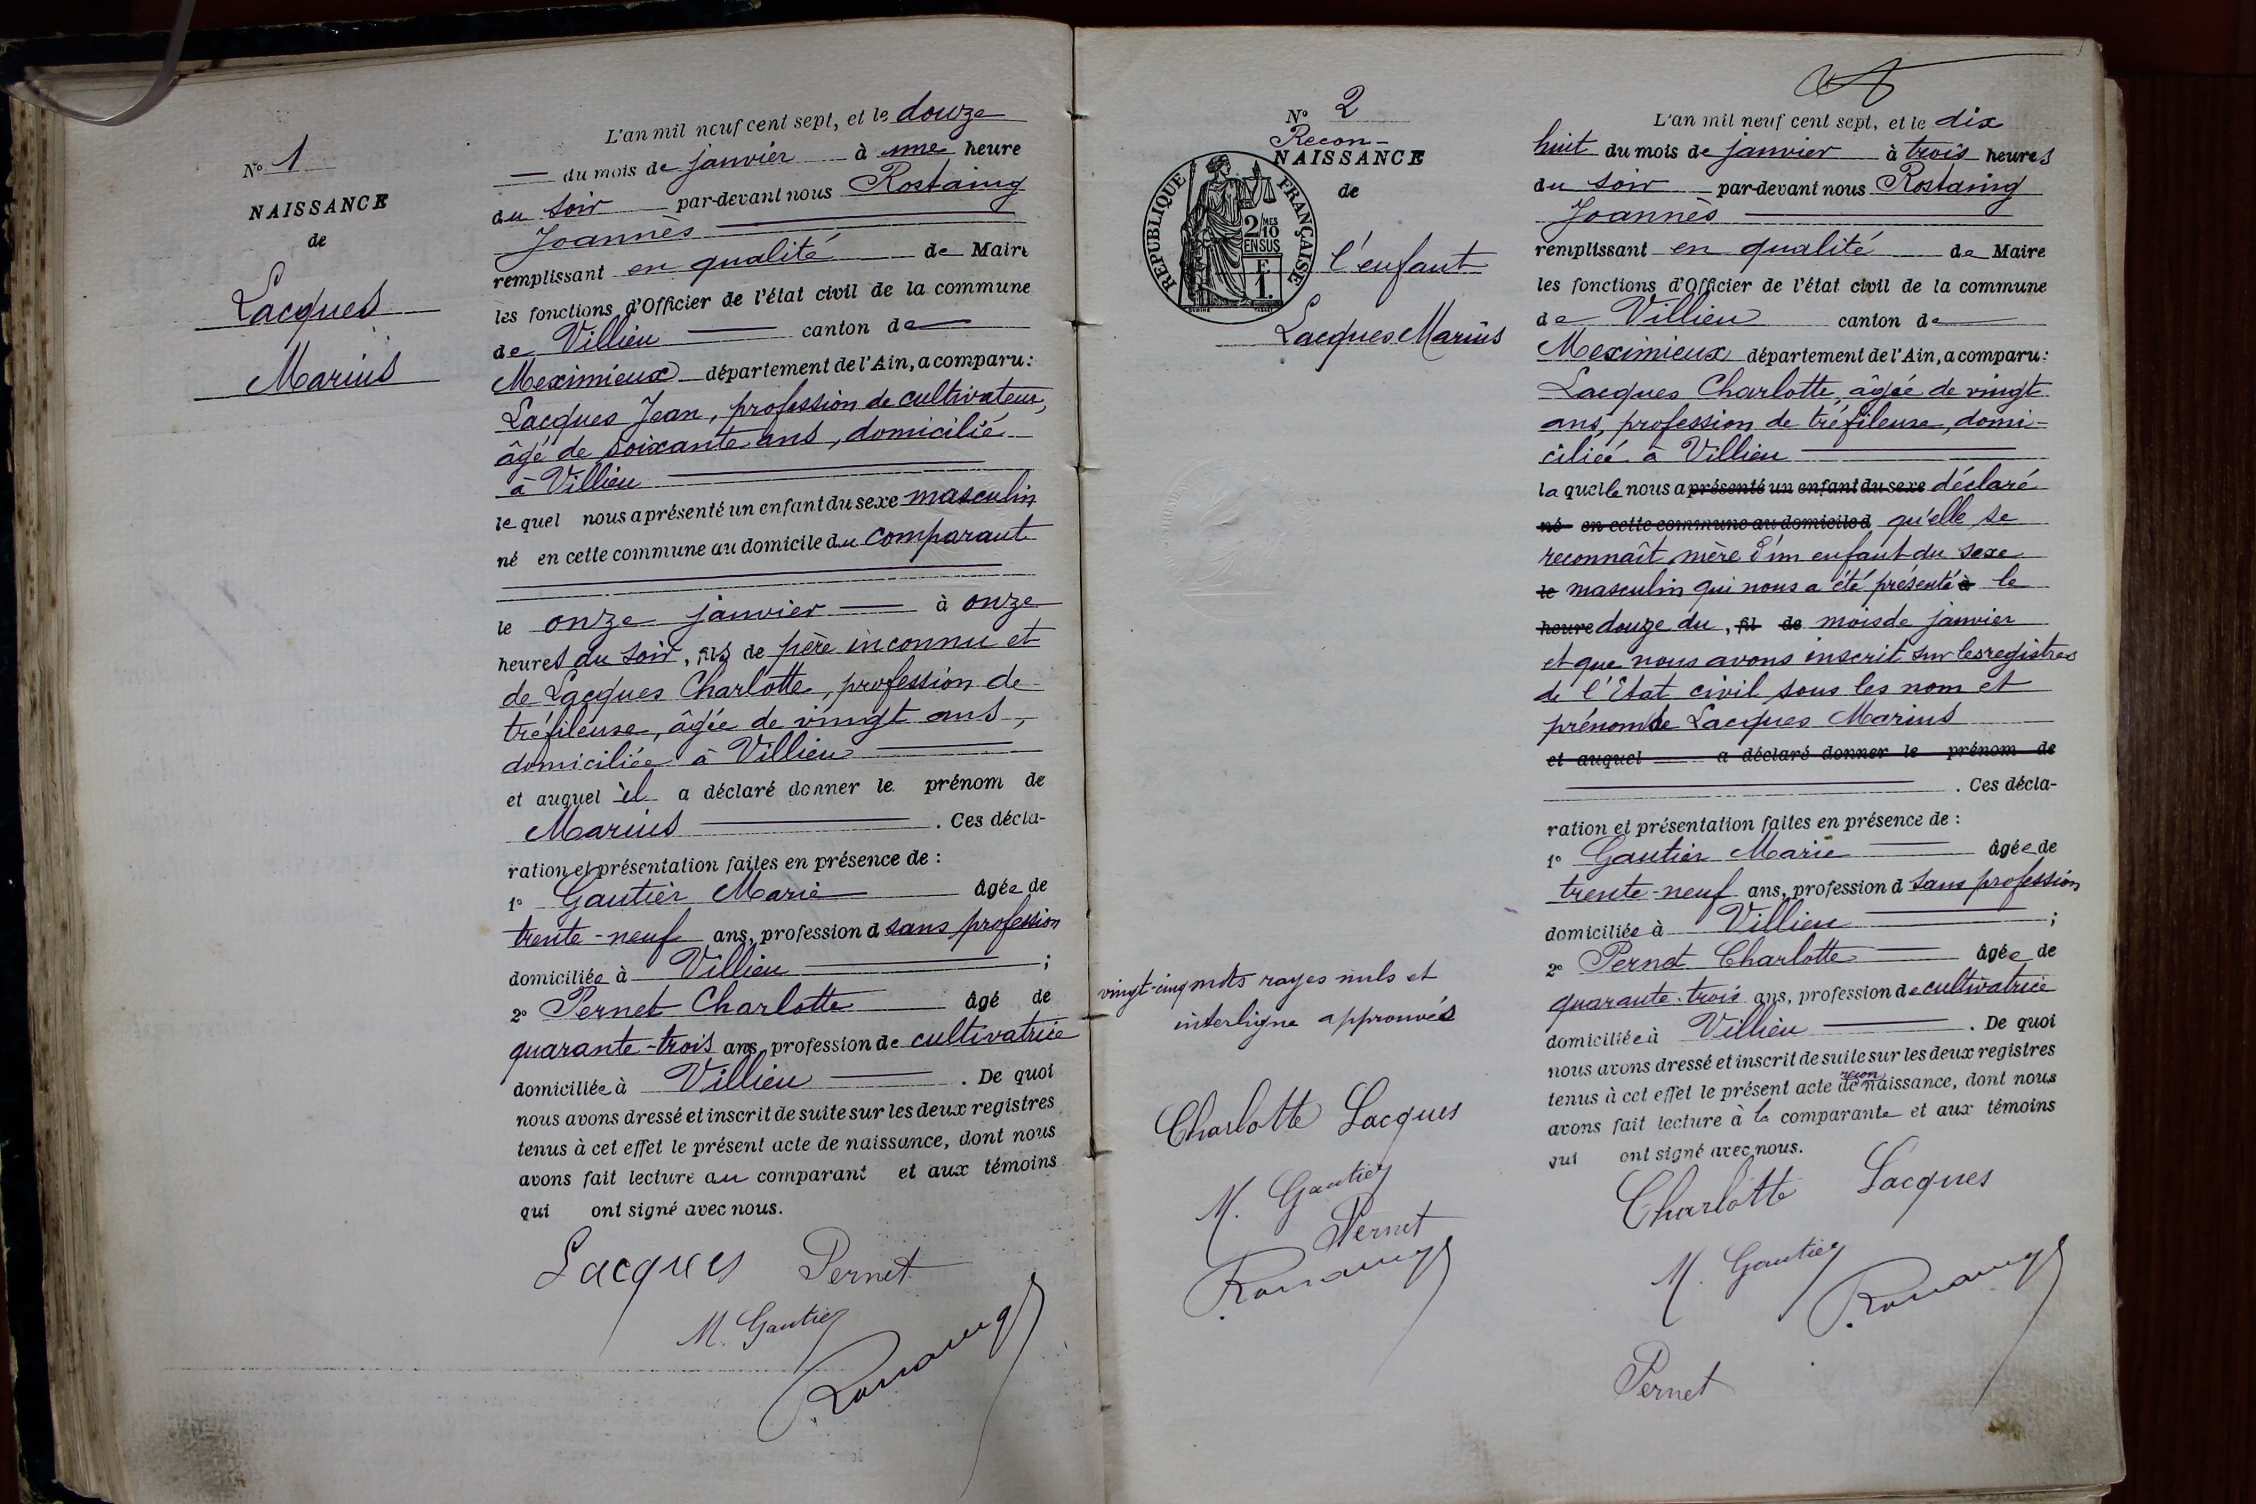 N° 1
NAISSANCE
de
Lacques
Marius
L'an mil neuf cent sept, et le douze
du mois de janvier à une heure
du soir par-devant nous Rostaing
Joannès
remplissant en qualité de Maire
les fonctions d'Officier de l'état civil de la commune
de Villieu canton de
Meximieux département de l'Ain, a comparu:
Lacques Jean, profession de cultivateur,
âgé de soixante ans, domicilié
à Villieu
lequel nous a présenté un enfant du sexe masculin
né en cette commune au domicile du comparant
le onze janvier à onze
heures du soir, fils de père inconnu et
de Lacques Charlotte, profession de
tréfileuse, âgée de vingt ans,
domiciliée à Villieu
et auquel il a déclaré donner le prénom de
Marius . Ces décla-
ration et présentation faites en présence de :
1° Gautier Marie âgée de
trente-neuf ans, profession d sans profession
domiciliée à Villieu ;
2° Pernet Charlotte âgé de
quarante-trois ans, profession de cultivatrice
domiciliée à Villieu . De quoi
nous avons dressé et inscrit de suite sur les deux registres
tenus à cet effet le présent acte de naissance, dont nous
avons fait lecture au comparant et aux témoins
qui ont signé avec nous.
Lacques Pernet
M. Gautier
Rostaing
N° 2
Recon-
NAISSANCE
de
RÉPUBLIQUE FRANÇAISE
2/10 MES
EN SUS
F
1.
l'enfant
Lacques Marius
vingt-cinq mots rayes nuls et
interligne approuvés
Charlotte Lacques
M. Gautier
Pernet
Rostaing
L'an mil neuf cent sept, et le dix
huit du mois de janvier à trois heures
du soir par-devant nous Rostaing
Joannès
remplissant en qualité de Maire
les fonctions d'Officier de l'état civil de la commune
de Villieu canton de
Meximieux département de l'Ain, a comparu:
Lacques Charlotte, âgée de vingt
ans, profession de tréfileuse, domi-
ciliée à Villieu
laquelle nous a présenté un enfant du sexe déclaré
né en cette commune au domicile d qu'elle se
reconnaît mère d'un enfant du sexe
le masculin qui nous a été présenté à le
heure douze du , fil de mois de janvier
et que nous avons inscrit sur les registres
de l'Etat civil sous les nom et
prénom de Lacques Marius
et auquel a déclaré donner le prénom de
. Ces décla-
ration et présentation faites en présence de :
1° Gautier Marie âgée de
trente-neuf ans, profession d sans profession
domiciliée à Villieu ;
2° Pernet Charlotte âgée de
quarante-trois ans, profession de cultivatrice
domiciliée à Villieu . De quoi
nous avons dressé et inscrit de suite sur les deux registres
recon
tenus à cet effet le présent acte de naissance, dont nous
avons fait lecture à la comparante et aux témoins
qui ont signé avec nous.
Charlotte Lacques
M. Gautier
Rostaing
Pernet